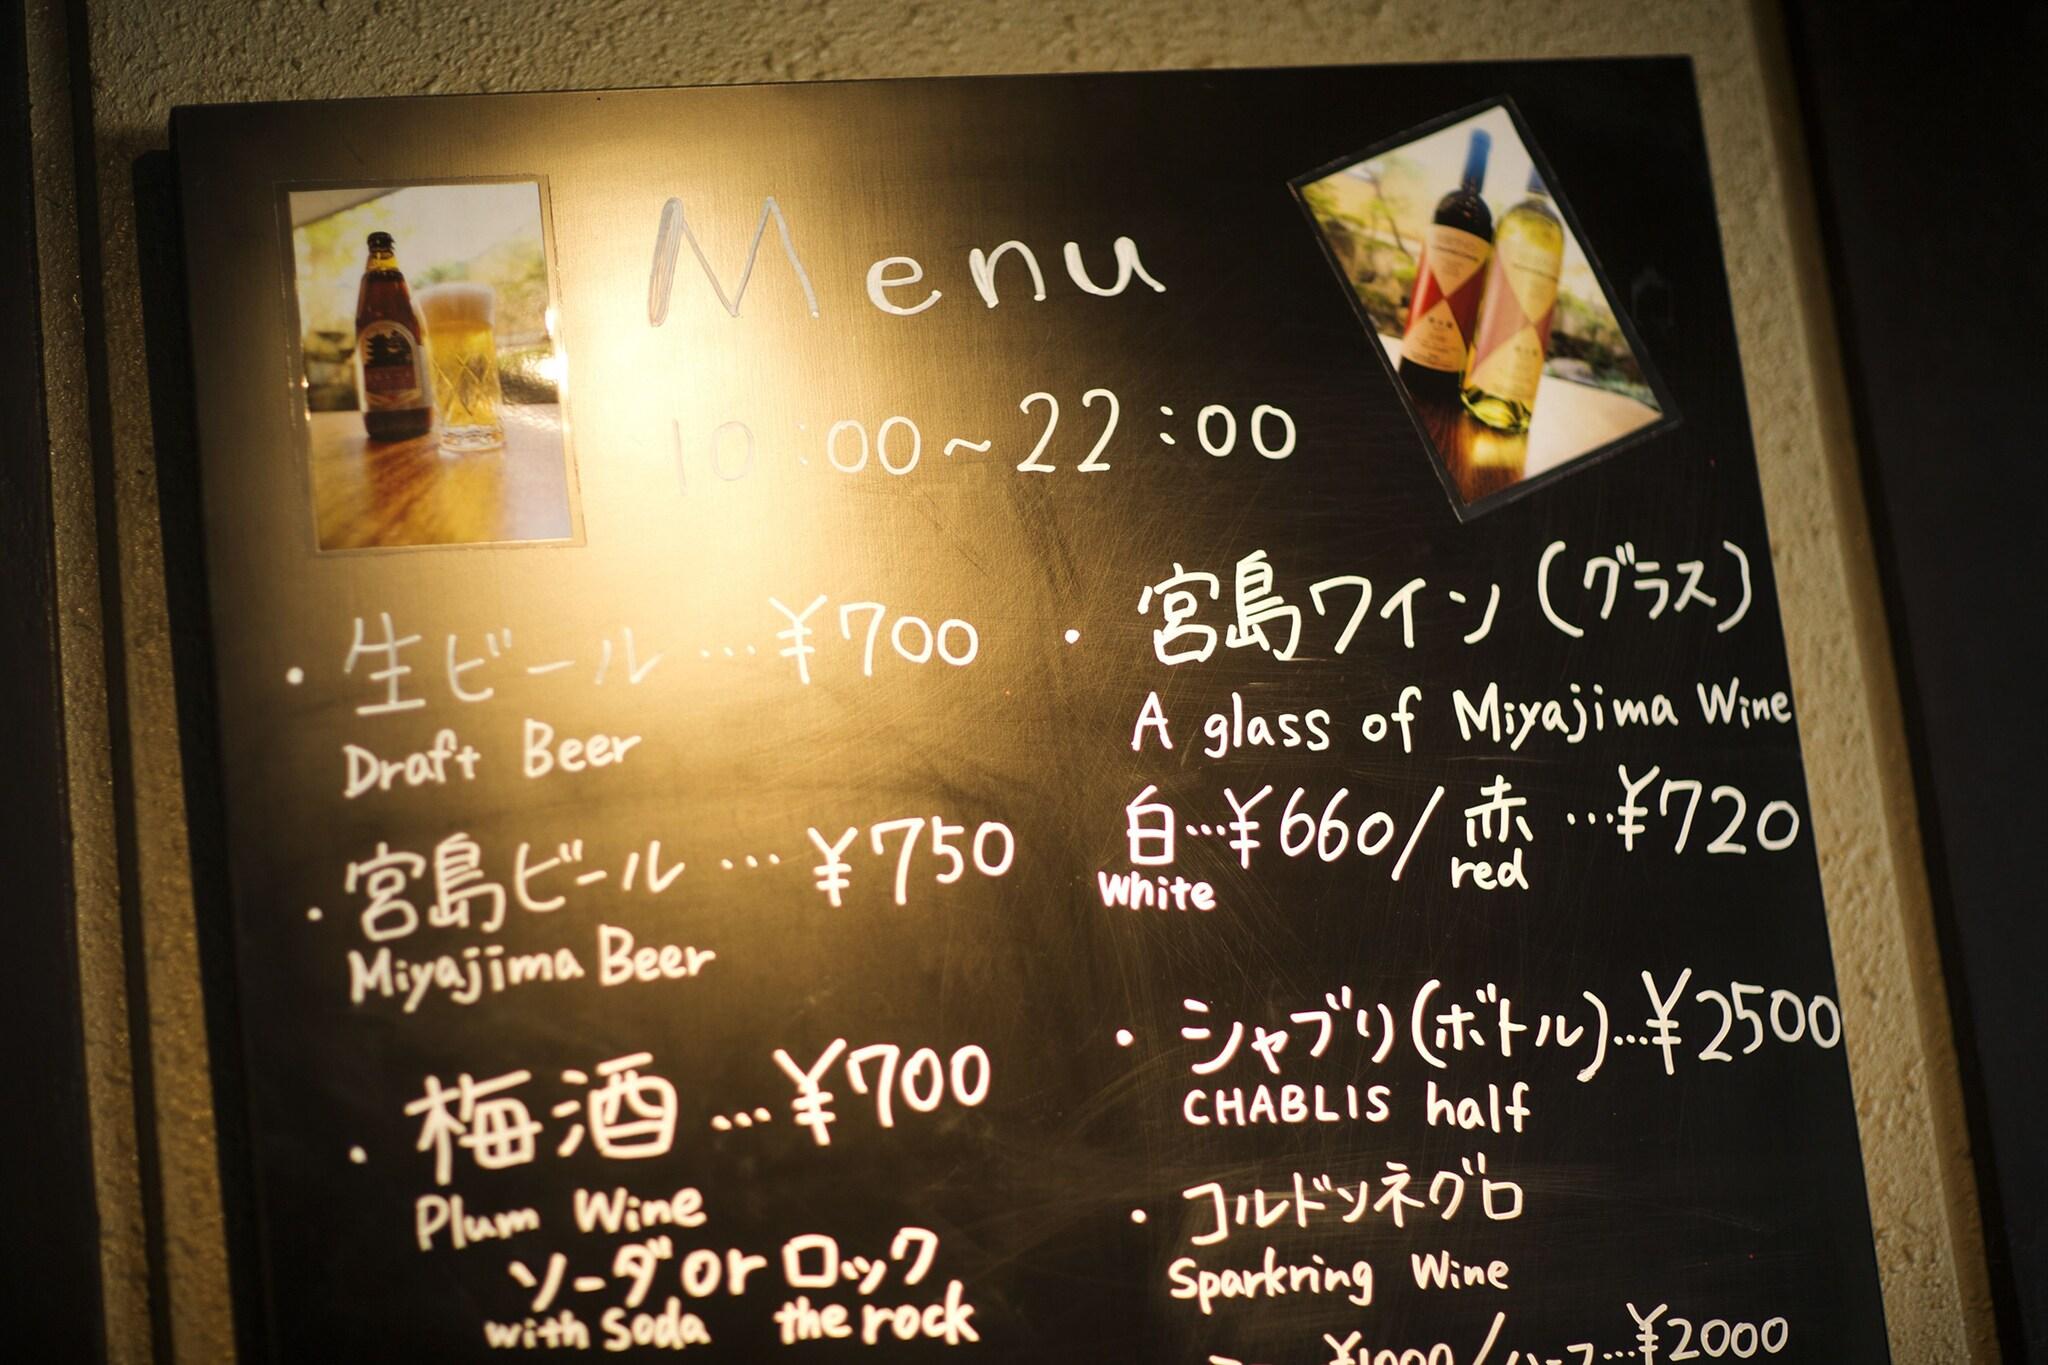 Menu
10:00~22:00
・生ビール…¥700
Draft Beer
・宮島ビール…¥750
Miyajima Beer
・梅酒…¥700
Plum Wine
ソーダorロック
with Soda the rock
・宮島ワイン(グラス)
A glass of Miyajima Wine
白…¥660/赤…¥720
White red
・シャブリ(ボトル)…¥2500
CHABLIS half
・コルドンネグロ
Sparkring Wine
¥1000/ハーフ…¥2000